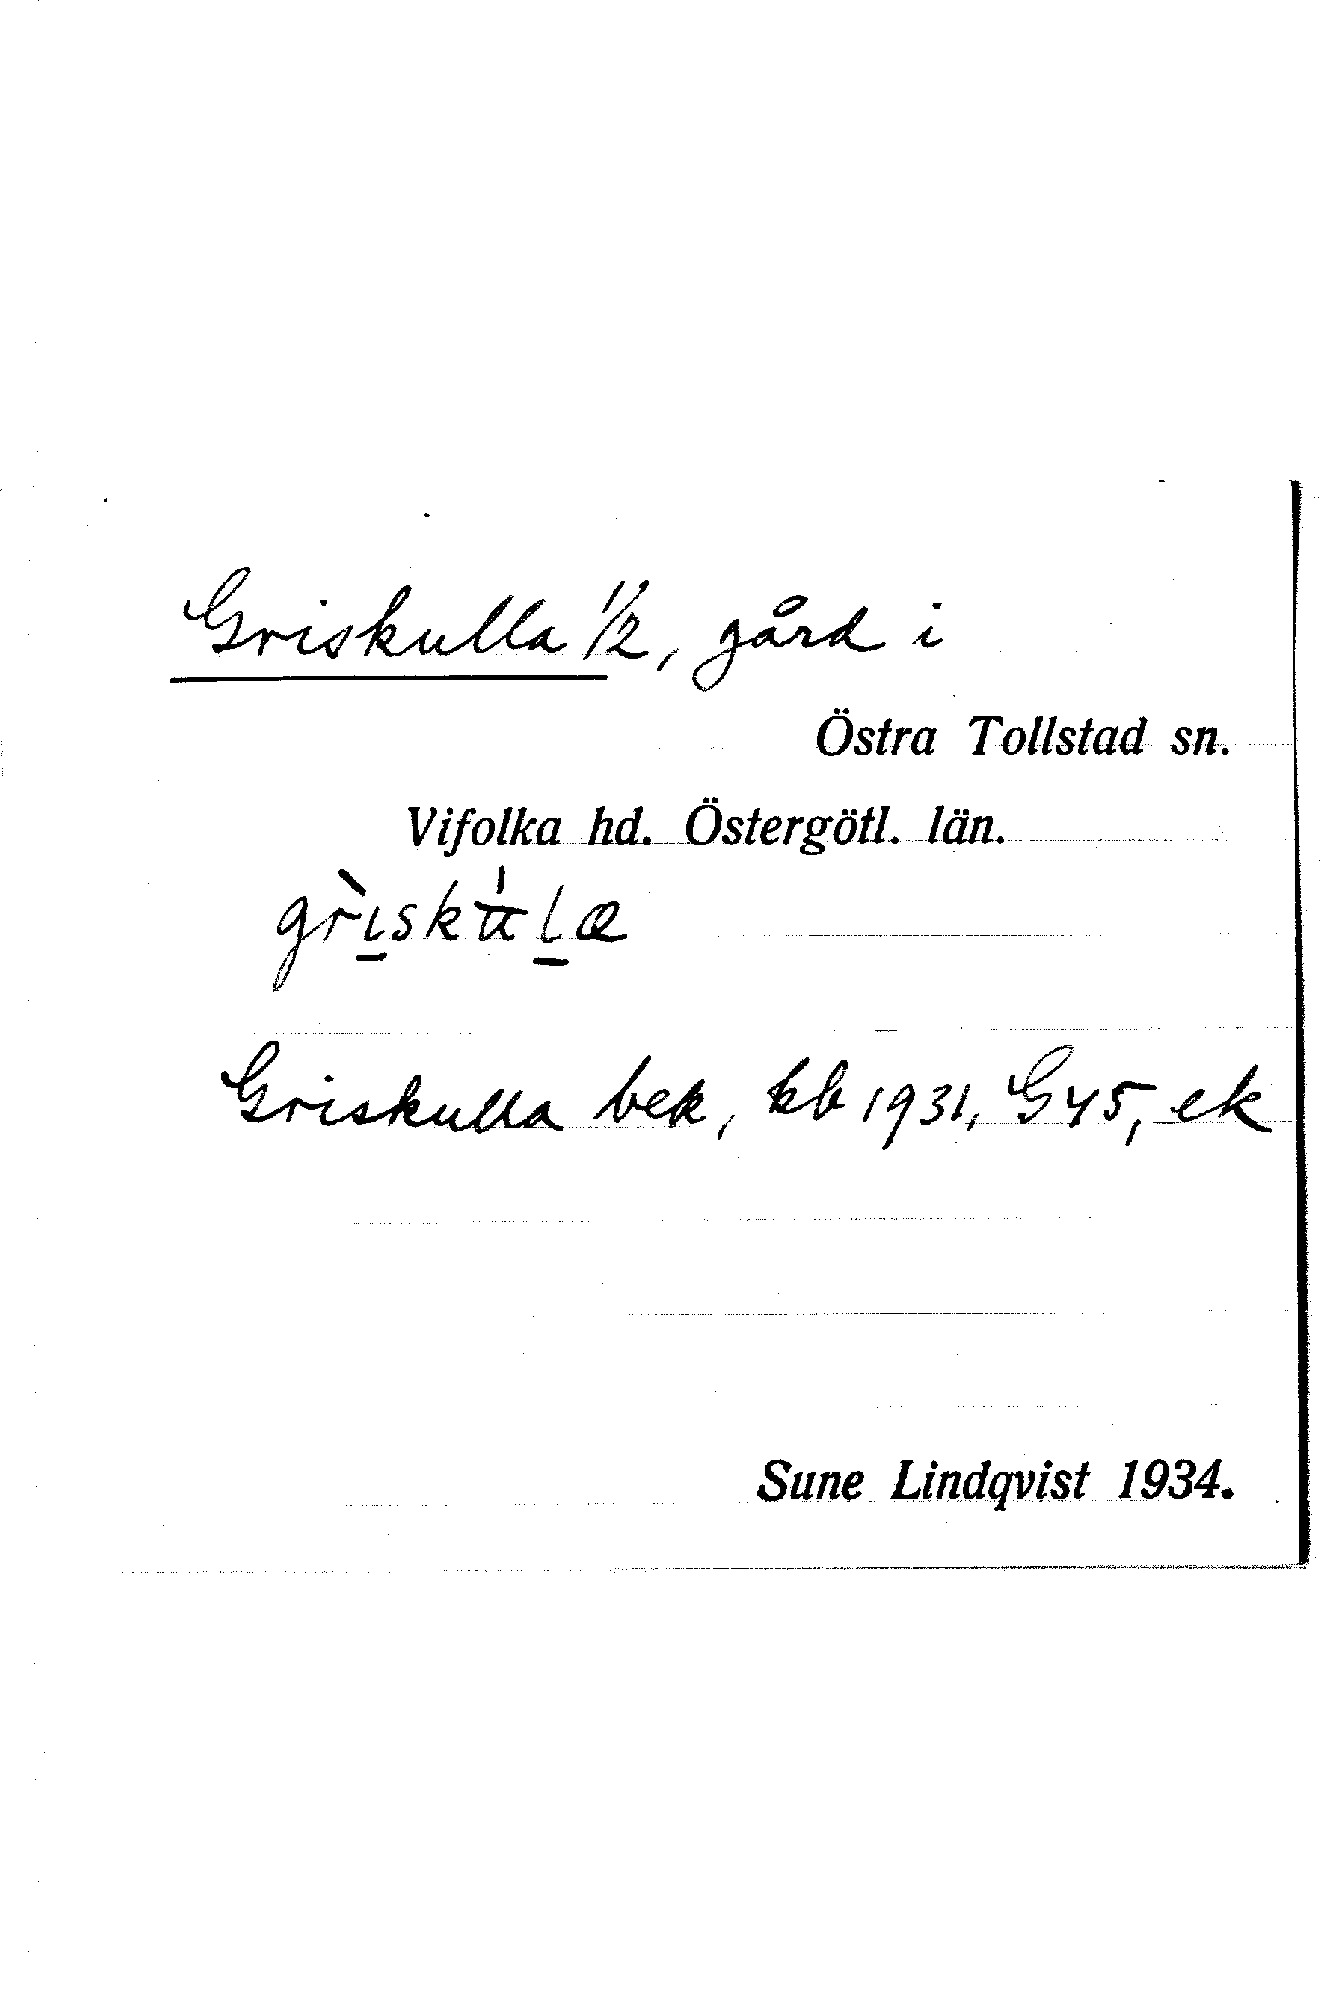 Griskulla 1/2, gård i
Östra Tollstad sn.
Vifolka hd. Östergötl. län.
grı̱̀skʉ́ḻæ
Griskulla bek, kb 1931, G45, ek
Sune Lindqvist 1934.